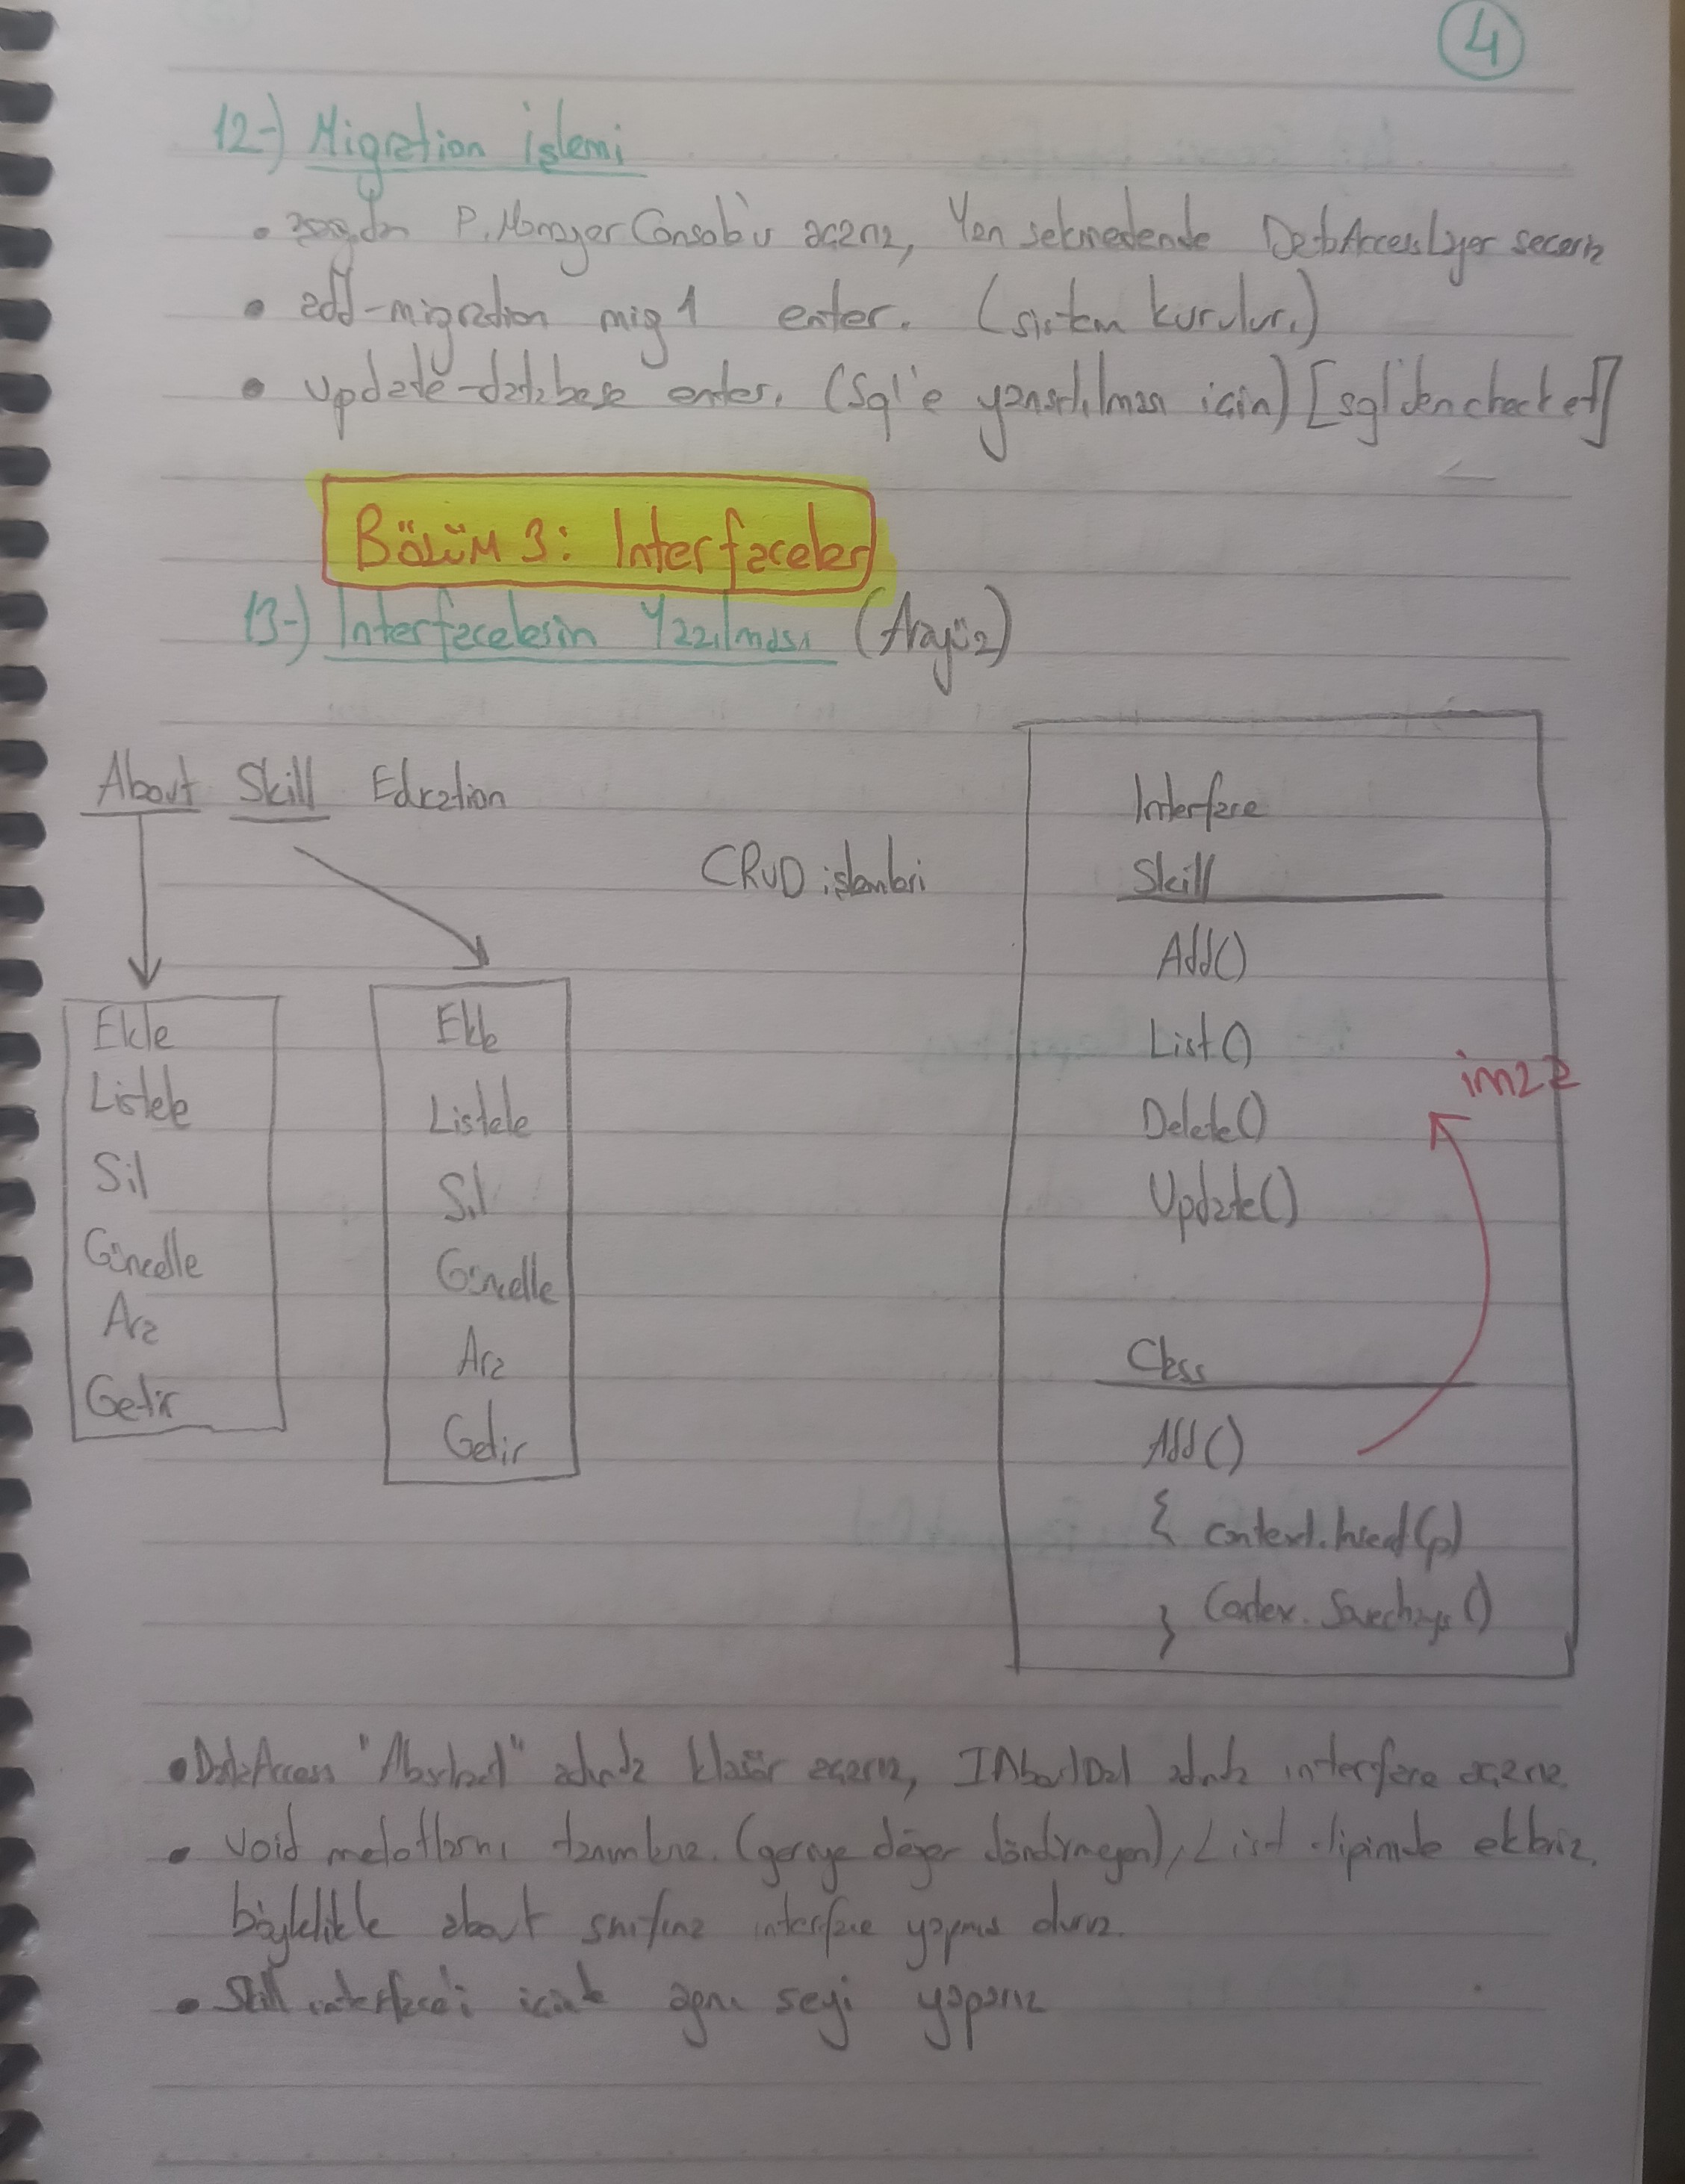 4
12-) Migration işlemi
• aşağıdan P. Manager Console'u açarız, Yan sekmedende DataAccessLayer seceriz
• add-migration mig 1 enter. (sistem kurulur.)
• update-database enter. (Sql'e yansıtılması için) [sql'den check et]
BÖLÜM 3: Interfaceler
13-) Interfacelerin Yazılması (Arayüz)
About Skill Education
CRUD işlemleri
Ekle
Listele
Sil
Güncelle
Ara
Getir
Ekle
Listele
Sil
Güncelle
Ara
Getir
Interface
Skill
Add()
List()
Delete()
Update()
imza
Class
Add()
{ context.Insert(p)
} Contex. Savechanges()
• DataAccess "Abstract" adında klasör açarız, IAboutDal adında interface açarız.
• void metotlarını tanımlarız. (geriye değer döndürmeyen), List tipinide ekleriz.
böylelikle about sınıfına interface yapmış oluruz.
• Skill interface'i içinde aynı seyi yaparız